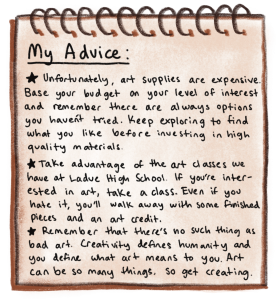 My Advice:
★ Unfortunately, art supplies are expensive.
Base your budget on your level of interest
and remember there are always options
you haven't tried. Keep exploring to find
what you like before investing in high
quality materials.
★ Take advantage of the art classes we
have at Ladue High School. If you're inter-
ested in art, take a class. Even if you
hate it, you'll walk away with some finished
pieces and an art credit.
★ Remember that there's no such thing as
bad art. Creativity defines humanity and
you define what art means to you. Art
can be so many things. So get creating.